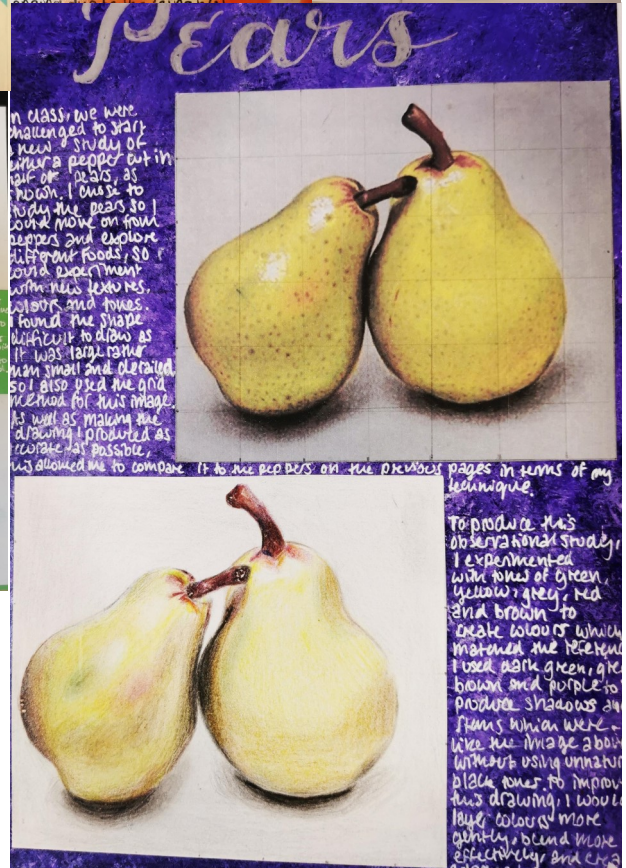 Pears
In class, we were
challenged to start
a new study of
either a pepper cut in
half or pears, as
shown. I chose to
study the pears so I
could move on from
peppers and explore
different foods, so I
could experiment
with new textures,
colours and tones.
I found the shape
difficult to draw as
it was large rather
than small and detailed
so I also used the grid
method for this image.
As well as making the
drawing I produced as
accurate as possible,
this allowed me to compare it to the peppers on the previous pages in terms of my
technique.
To produce this
observational study,
I experimented
with tones of green,
yellow, grey, red
and brown to
create colours which
matched the reference
I used dark green, grey
brown and purple to
produce shadows and
stems which were
like the image above
without using unnatural
black tones. To improve
this drawing, I would
layer colours more
gently, blend more
effectively, and